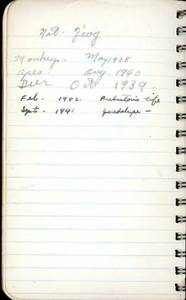 Nat. Geog
Monkeys. May 1938
Apes. Aug 1940
Deer Oct 1939.
Feb. 1942. Prehistoric life
Sept. 1941 Guadalupe -